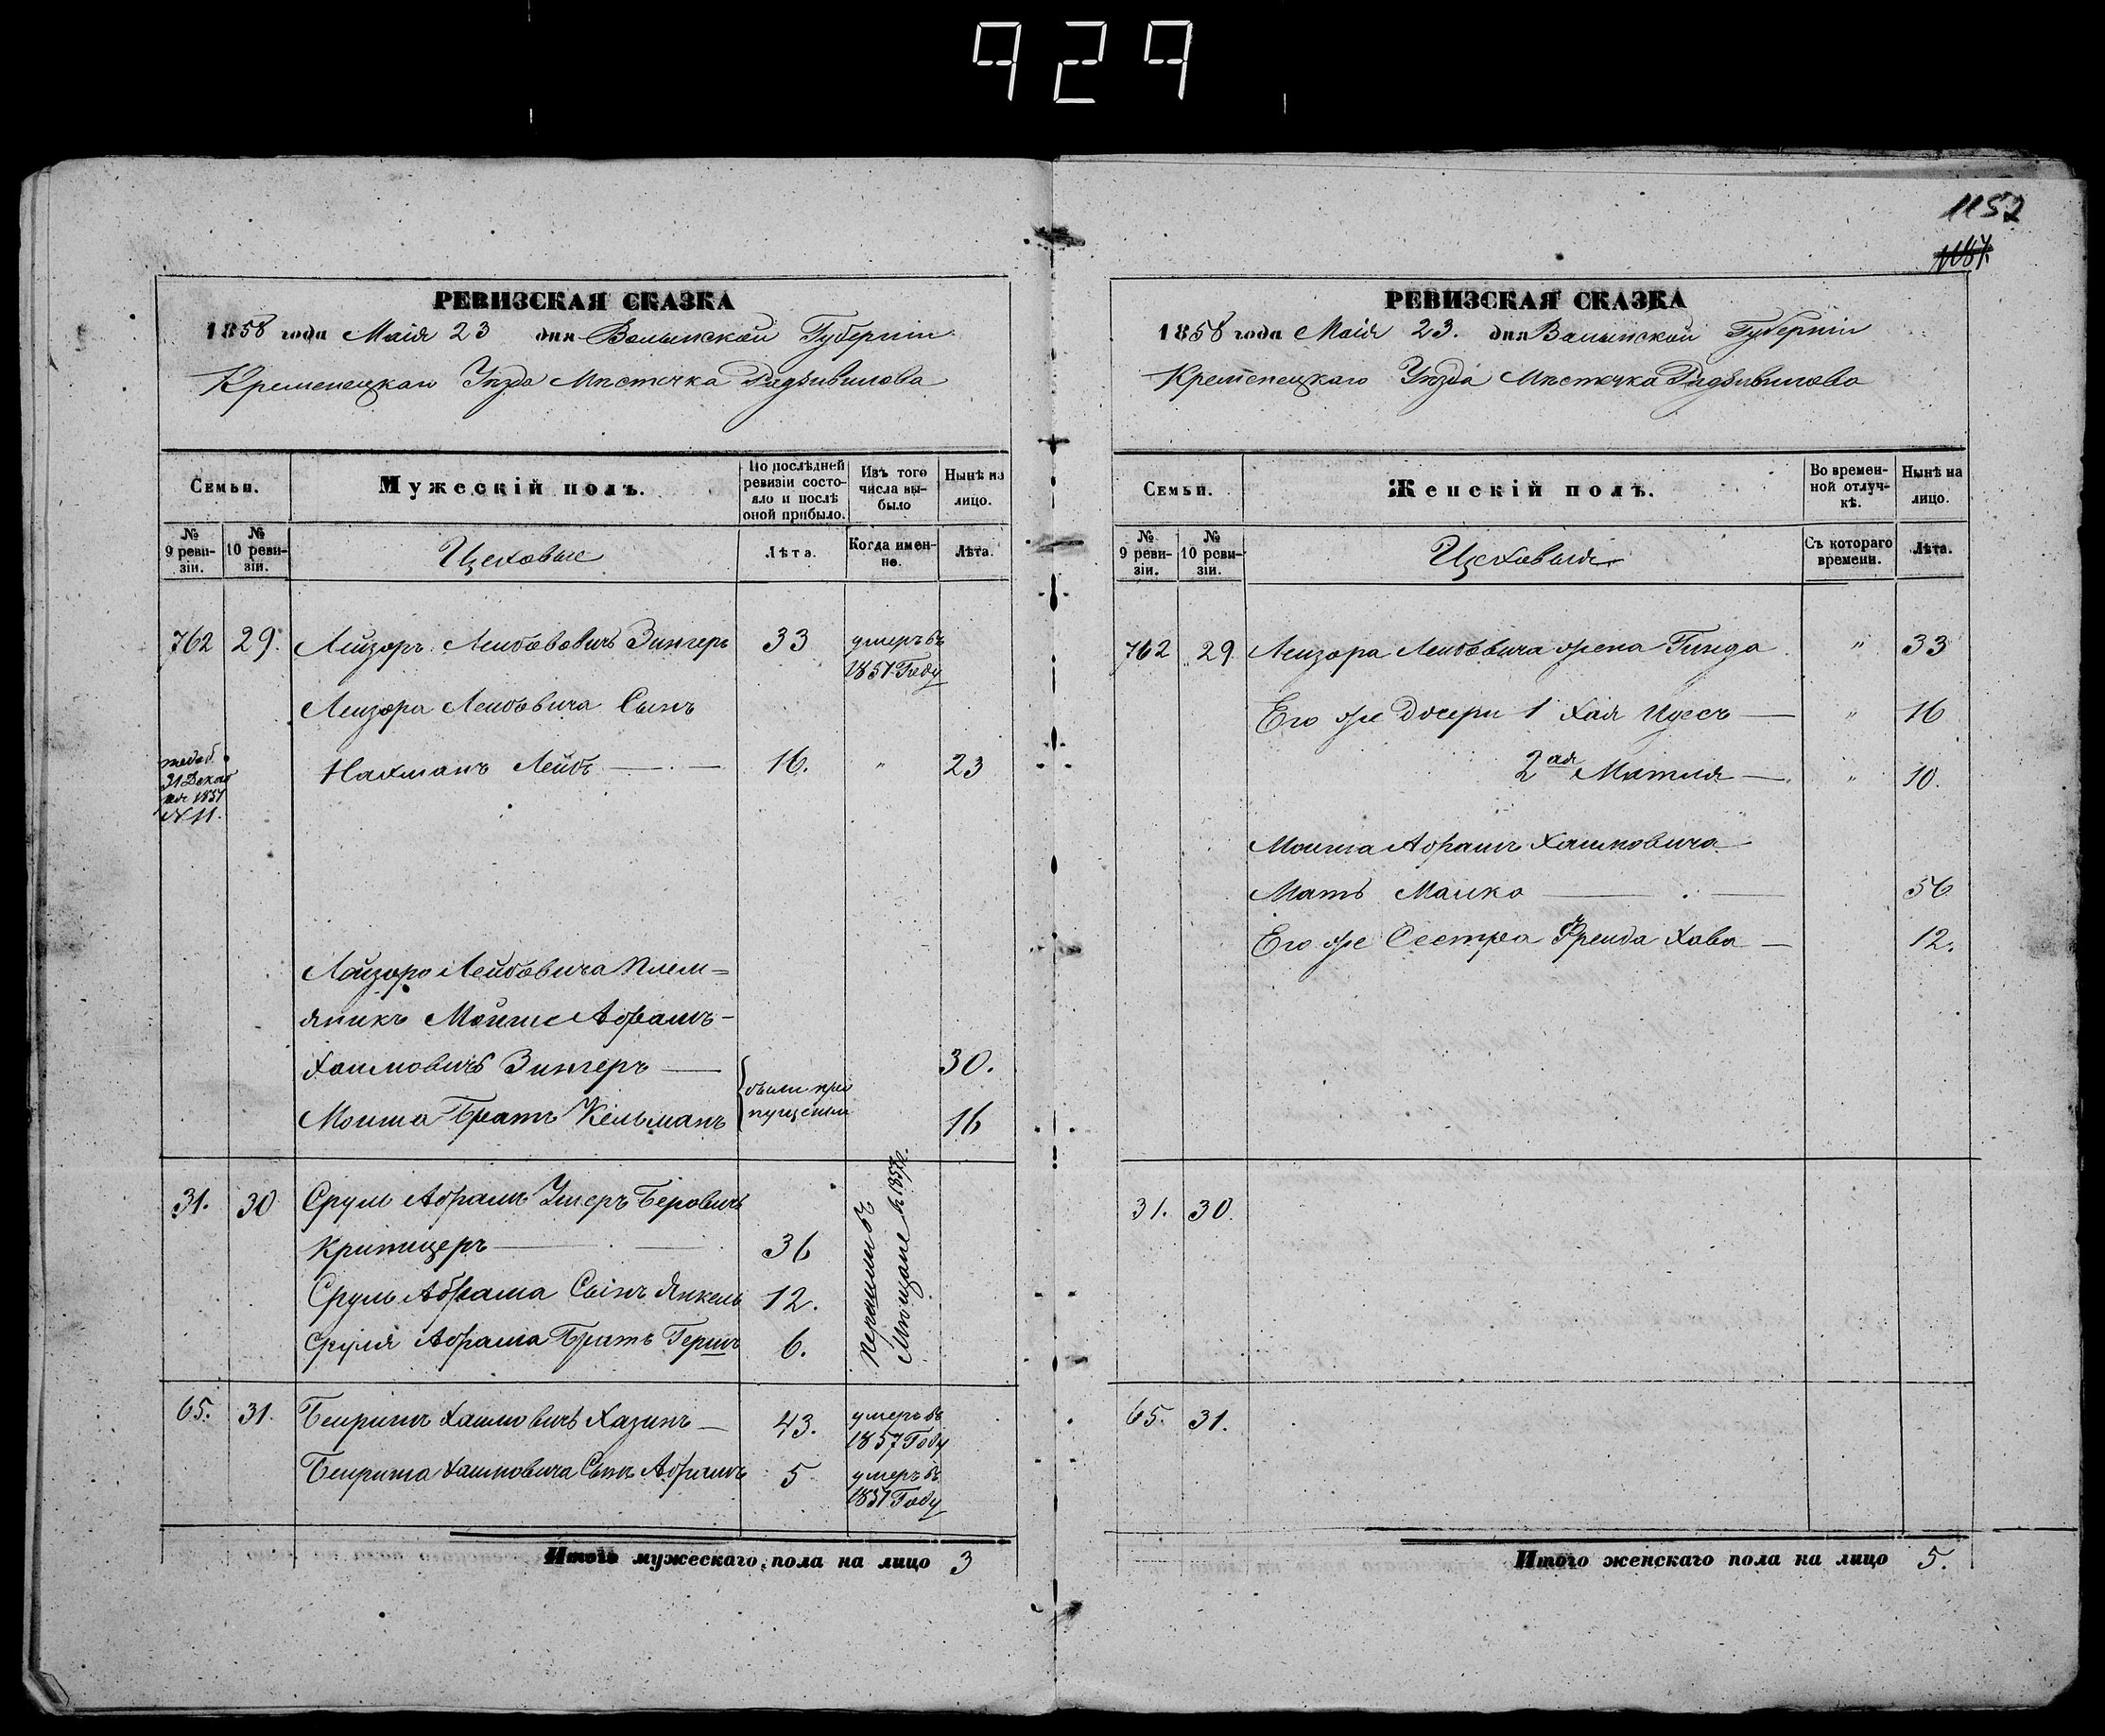 929
1152
РЕВИЗСКАЯ СКАЗКА
1858 года Маія 23 дня Волынской Губерніи
Кременецкаго Уѣзда Мѣстечка Радзивилова
Семьи.
Мужескій полъ.
По послѣдней ревизіи состояло и послѣ оной прибыло.
Изъ того числа выбыло
Нынѣ на лицо.
№ 9 ревизіи.
№ 10 ревизіи.
Цеховые
Лѣта.
Когда именно.
Лѣта.
762 29. Лейзоръ Лейбовичъ Зингеръ 33 умеръ въ
1851 Году
Лейзора Лейбовича Сынъ
Нахманъ Лейбъ 16. " 23
31 Декаб
1851
№ 11.
Лейзора Лейбовича Плем=
яникъ Моише Абрамъ-
Хаимовичъ Зингеръ 30.
были про
пущены
Моиша Братъ Кельманъ 16
31. 30 Сруль Абрамъ Умеръ Беровичъ
Критицеръ 36
Сруль Абрама Сынъ Янкель 12.
Сруля Абрама Братъ Гершъ 6.
перешли въ
Мѣщане въ 1857 г.
65. 31. Беиришъ Хаимовичъ Хазинъ 43. умеръ въ
1857 Году
Беириша Хаимовича Сынъ Абрамъ 5 умеръ въ
1851 Году
Итого мужескаго пола на лицо 3
РЕВИЗСКАЯ СКАЗКА
1858 года Маія 23. дня Волынской Губерніи
Кременецкаго Уѣзда Мѣстечка Радзивилова
Семьи.
Женскій полъ.
Во временной отлучкѣ.
Нынѣ на лицо.
№ 9 ревизіи.
№ 10 ревизіи.
Цеховыя
Съ котораго времени.
Лѣта.
762 29 Лейзора Лейбовича жена Гинда " 33
Его же Дочери 1 Хая Идесъ " 16
2ая Матля " 10.
Моиша Абрамъ Хаимовича
Мать Малка 56
Его же Сестра Фреида Хава 12.
31. 30.
65. 31.
Итого женскаго пола на лицо 5.